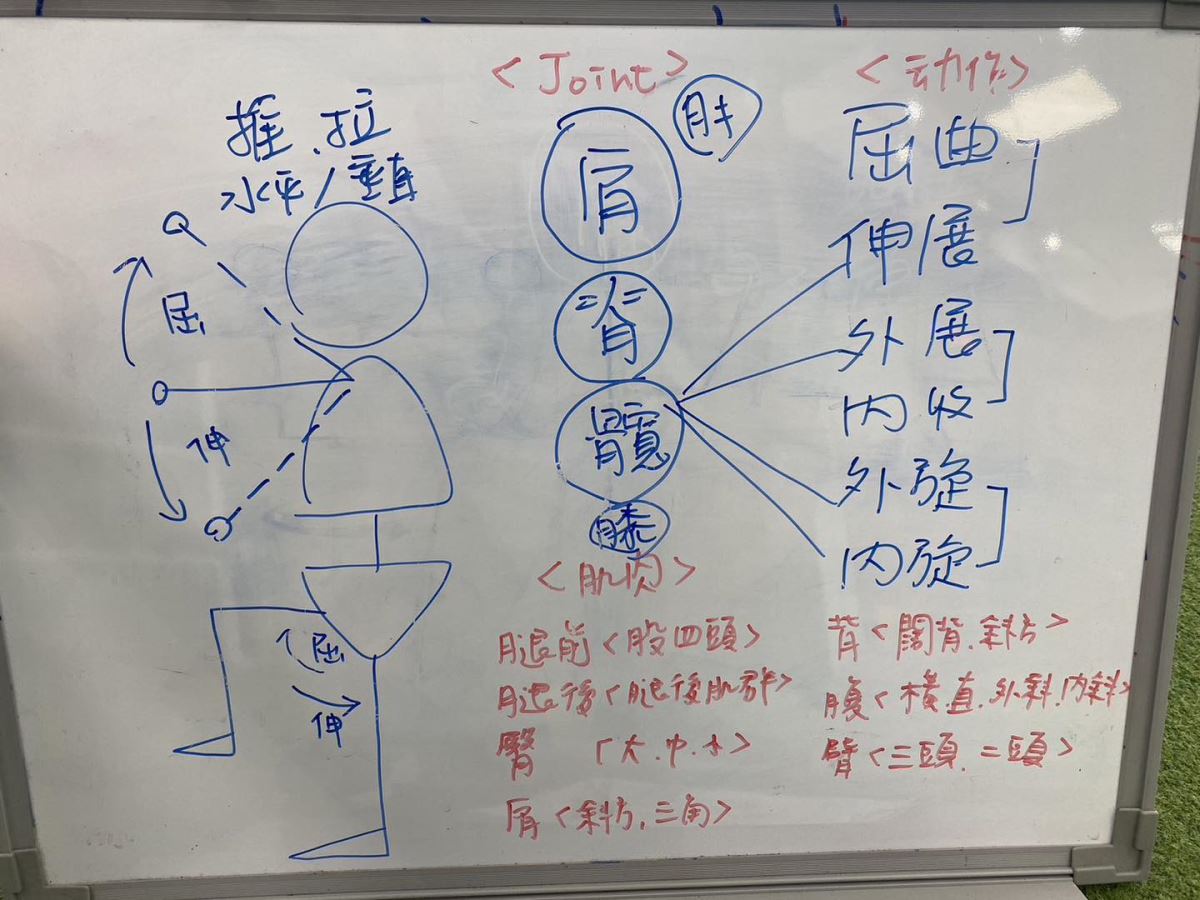 推、拉
水平/垂直
屈
伸
屈
伸
<Joint>
肩
肘
脊
髖
膝
<动作>
屈曲
伸展
外展
内收
外旋
内旋
<肌肉>
腿前<股四頭>
腿後<腿後肌群>
臀「大.中.小>
肩<斜方,三角>
背<闊背.斜方>
腹<橫.直.外斜.内斜>
臂<三頭.二頭>